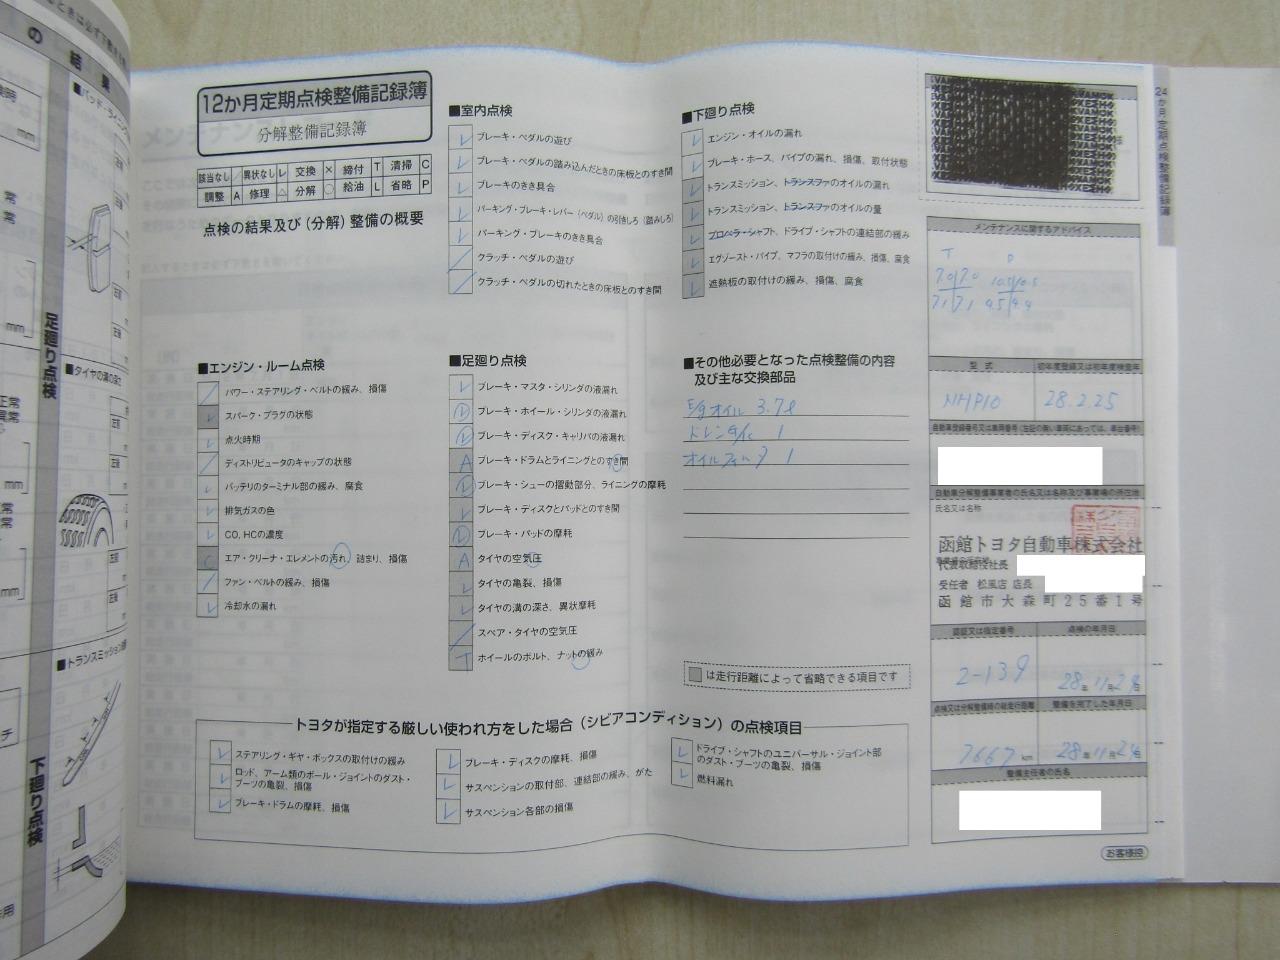 12か月定期点検整備記録簿
分解整備記録簿
該当なし ／ 異状なし レ 交換 × 締付 T 清掃 C
調整 A 修理 △ 分解 ○ 給油 L 省略 P
点検の結果及び（分解）整備の概要
■エンジン・ルーム点検
パワー・ステアリング・ベルトの緩み、損傷
スパーク・プラグの状態
点火時期
ディストリビュータのキャップの状態
バッテリのターミナル部の緩み、腐食
排気ガスの色
CO、HCの濃度
エア・クリーナ・エレメントの汚れ、詰まり、損傷
ファン・ベルトの緩み、損傷
冷却水の漏れ
■室内点検
ブレーキ・ペダルの遊び
ブレーキ・ペダルの踏み込んだときの床板とのすき間
ブレーキのきき具合
パーキング・ブレーキ・レバー（ペダル）の引きしろ（踏みしろ）
パーキング・ブレーキのきき具合
クラッチ・ペダルの遊び
クラッチ・ペダルの切れたときの床板とのすき間
■足廻り点検
ブレーキ・マスタ・シリンダの液漏れ
ブレーキ・ホイール・シリンダの液漏れ
ブレーキ・ディスク・キャリパの液漏れ
A ブレーキ・ドラムとライニングとのすき間
ブレーキ・シューの摺動部分、ライニングの摩耗
ブレーキ・ディスクとパッドとのすき間
ブレーキ・パッドの摩耗
A タイヤの空気圧
タイヤの亀裂、損傷
タイヤの溝の深さ、異状摩耗
スペア・タイヤの空気圧
T ホイールのボルト、ナットの緩み
■下廻り点検
エンジン・オイルの漏れ
ブレーキ・ホース、パイプの漏れ、損傷、取付状態
トランスミッション、トランスファのオイルの漏れ
トランスミッション、トランスファのオイルの量
プロペラ・シャフト、ドライブ・シャフトの連結部の緩み
エグゾースト・パイプ、マフラの取付けの緩み、損傷、腐食
遮熱板の取付けの緩み、損傷、腐食
■その他必要となった点検整備の内容
及び主な交換部品
E/gオイル 3.7ℓ
1
1
は走行距離によって省略できる項目です
トヨタが指定する厳しい使われ方をした場合（シビアコンディション）の点検項目
ステアリング・ギヤ・ボックスの取付けの緩み
ロッド、アーム類のボール・ジョイントのダスト・
ブーツの亀裂、損傷
ブレーキ・ドラムの摩耗、損傷
ブレーキ・ディスクの摩耗、損傷
サスペンションの取付部、連結部の緩み、がた
サスペンション各部の損傷
ドライブ・シャフトのユニバーサル・ジョイント部
のダスト・ブーツの亀裂、損傷
燃料漏れ
様
メンテナンスに関するアドバイス
型式 初年度登録又は初年度検査年
NHP10 28.2.25
自動車登録番号又は車両番号（左記の無い車両にあっては、車台番号）
自動車分解整備事業者の氏名又は名称及び事業場の所在地
氏名又は名称
函館トヨタ自動車株式会社
代表取締役社長
受任者 松風店 店長
函館市大森町25番1号
認証又は指定番号 点検の年月日
2-139 28年11月26日
点検又は分解整備時の総走行距離 整備を完了した年月日
7667 km 28年11月26日
整備主任者の氏名
お客様控
24か月定期点検整備記録簿
の結果
足廻り点検
下廻り点検
■タイヤの溝の深さ
■トランスミッション